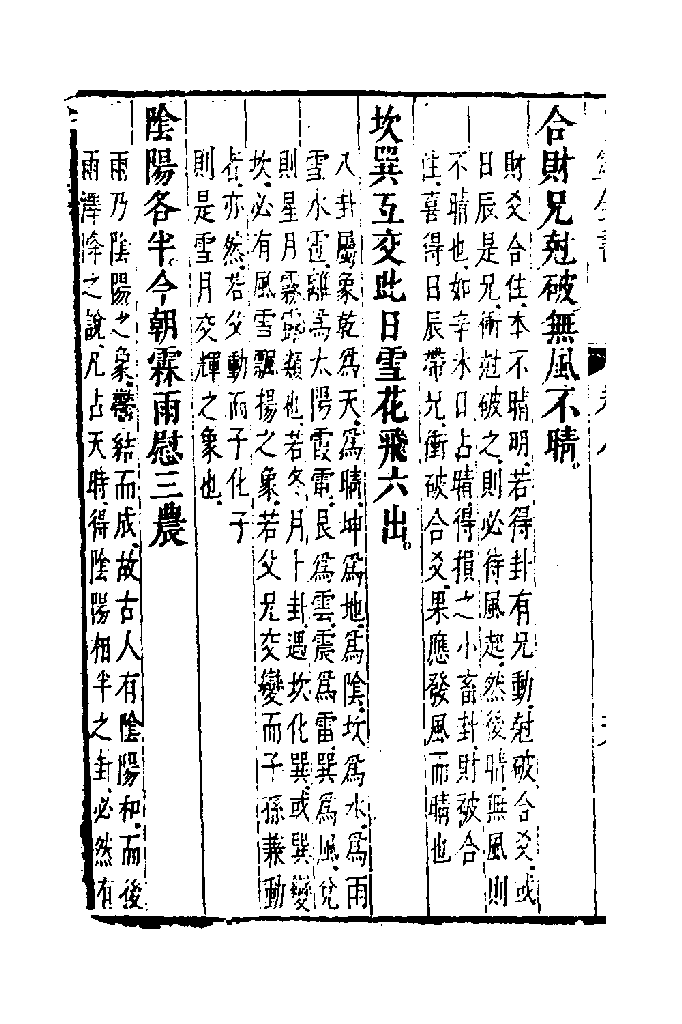 合財兄尅破無風不晴。
財爻合住本不晴明若得卦有兄動尅破合爻或
日辰是兄衝尅破之則必待風起然後晴無風則
不晴也如辛未日占晴得損之小畜卦財被合
住喜得日辰帶兄衝破合爻果應發風而晴也
坎巽互交此日雪花飛六出。
八卦屬象乾爲天爲晴坤爲地爲陰坎爲水爲雨
雪水雹離爲太陽霞電艮爲雲震爲雷巽爲風兌
則星月霧露類也若冬月卜卦遇坎化巽或巽變
坎必有風雪飄揚之象若父兄交變而子孫兼動
者亦然若父動而子化子
則是雪月交輝之象也
陰陽各半。今朝霖雨慰三農
雨乃陰陽之象鬱結而成故古人有陰陽和而後
雨澤降之說凡占天時得陰陽相半之卦必然有